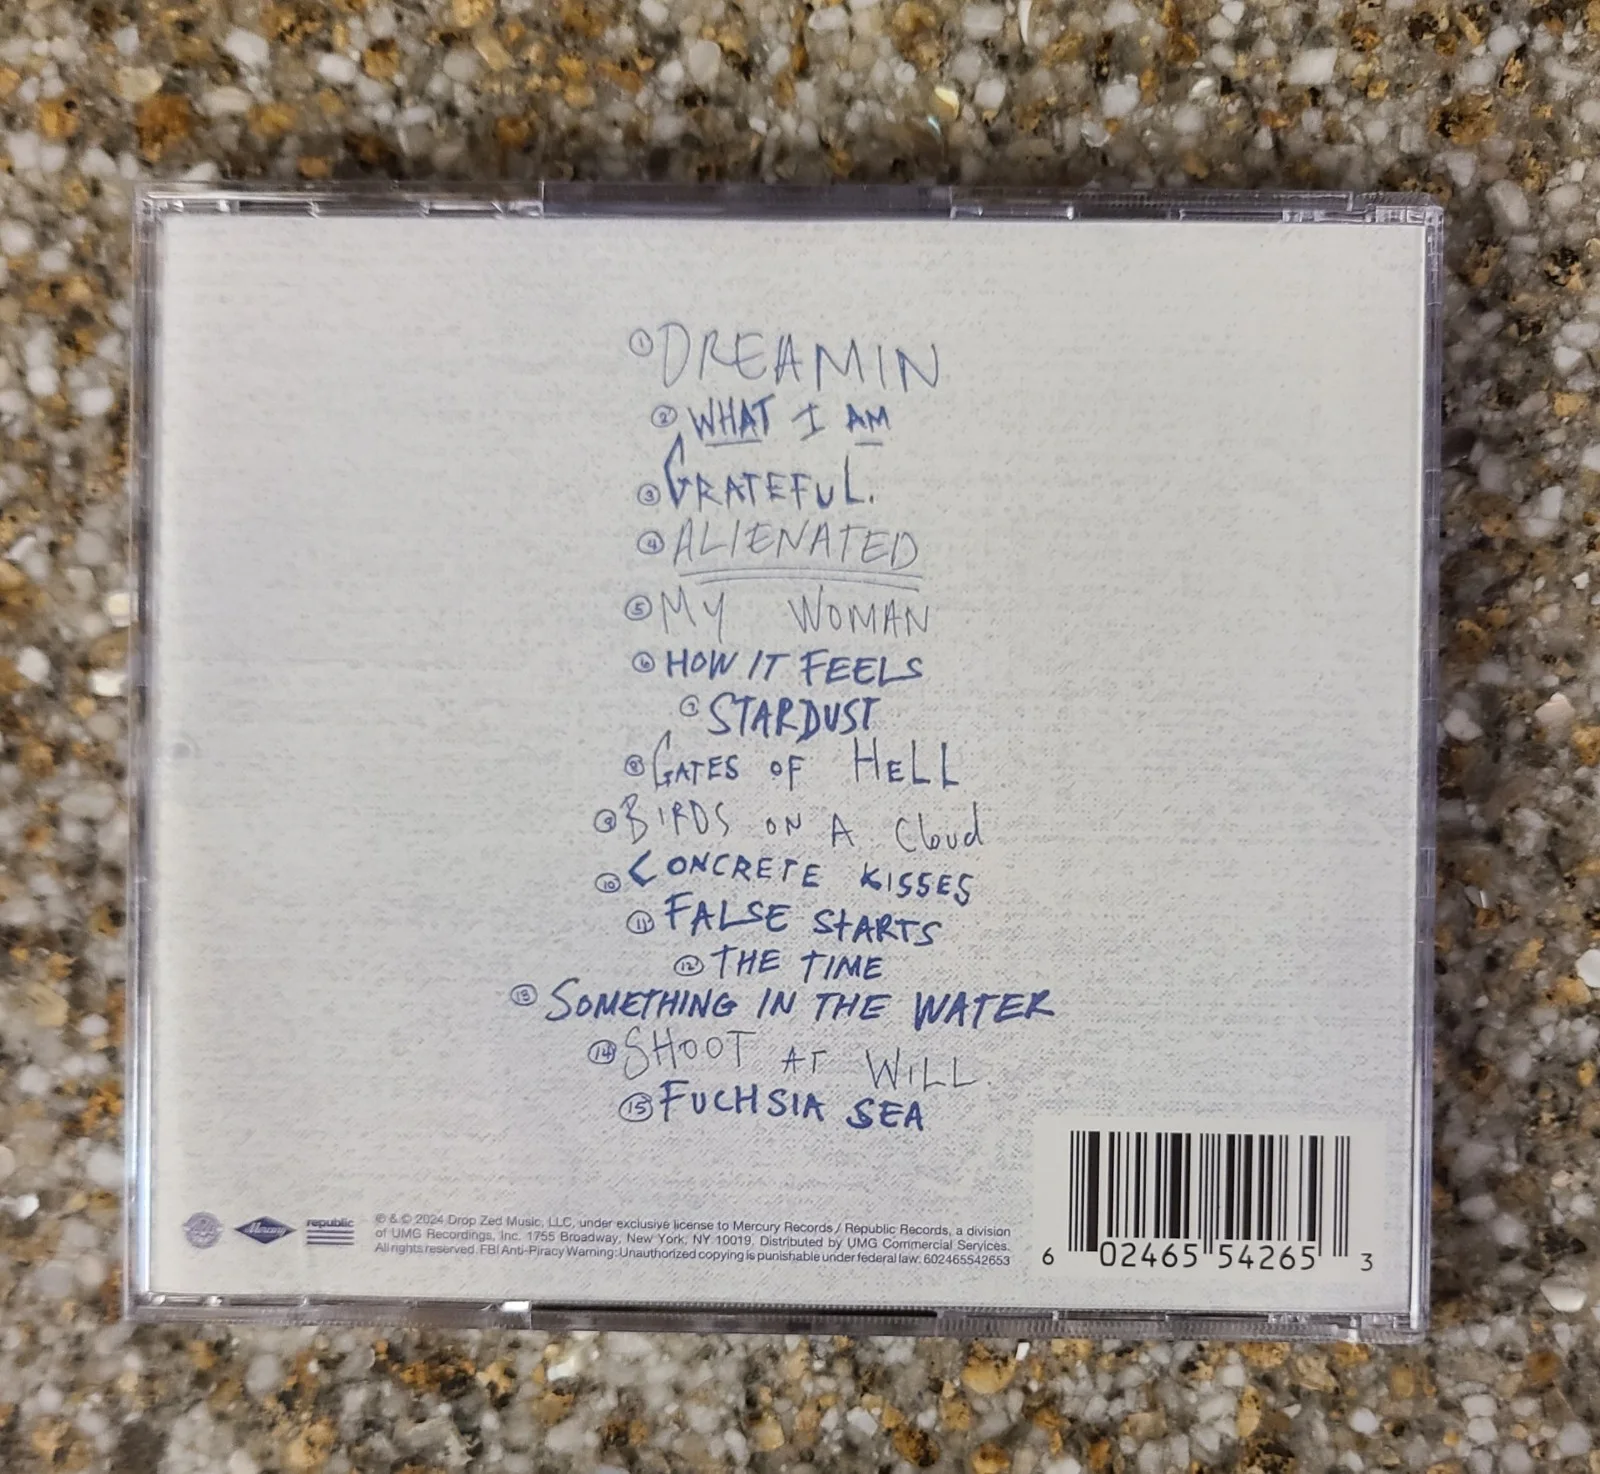 ① DREAMIN
② WHAT I AM
③ GRATEFUL.
④ ALIENATED
⑤ MY WOMAN
⑥ HOW IT FEELS
⑦ STARDUST
⑧ GATES OF HELL
⑨ BIRDS ON A Cloud
⑩ CONCRETE KISSES
⑪ FALSE STARTS
⑫ THE TIME
⑬ SOMETHING IN THE WATER
⑭ SHOOT AT WILL.
⑮ FUCHSIA SEA
Mercury
republic
℗ & © 2024 Drop Zed Music, LLC, under exclusive license to Mercury Records / Republic Records, a division
of UMG Recordings, Inc. 1755 Broadway, New York, NY 10019. Distributed by UMG Commercial Services.
All rights reserved. FBI Anti-Piracy Warning: Unauthorized copying is punishable under federal law. 602465542653
6 02465 54265 3